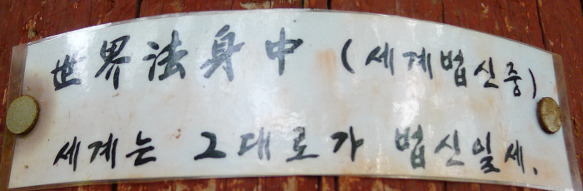 世界法身中 (세계법신중)
세계는 그대로가 법신일세.